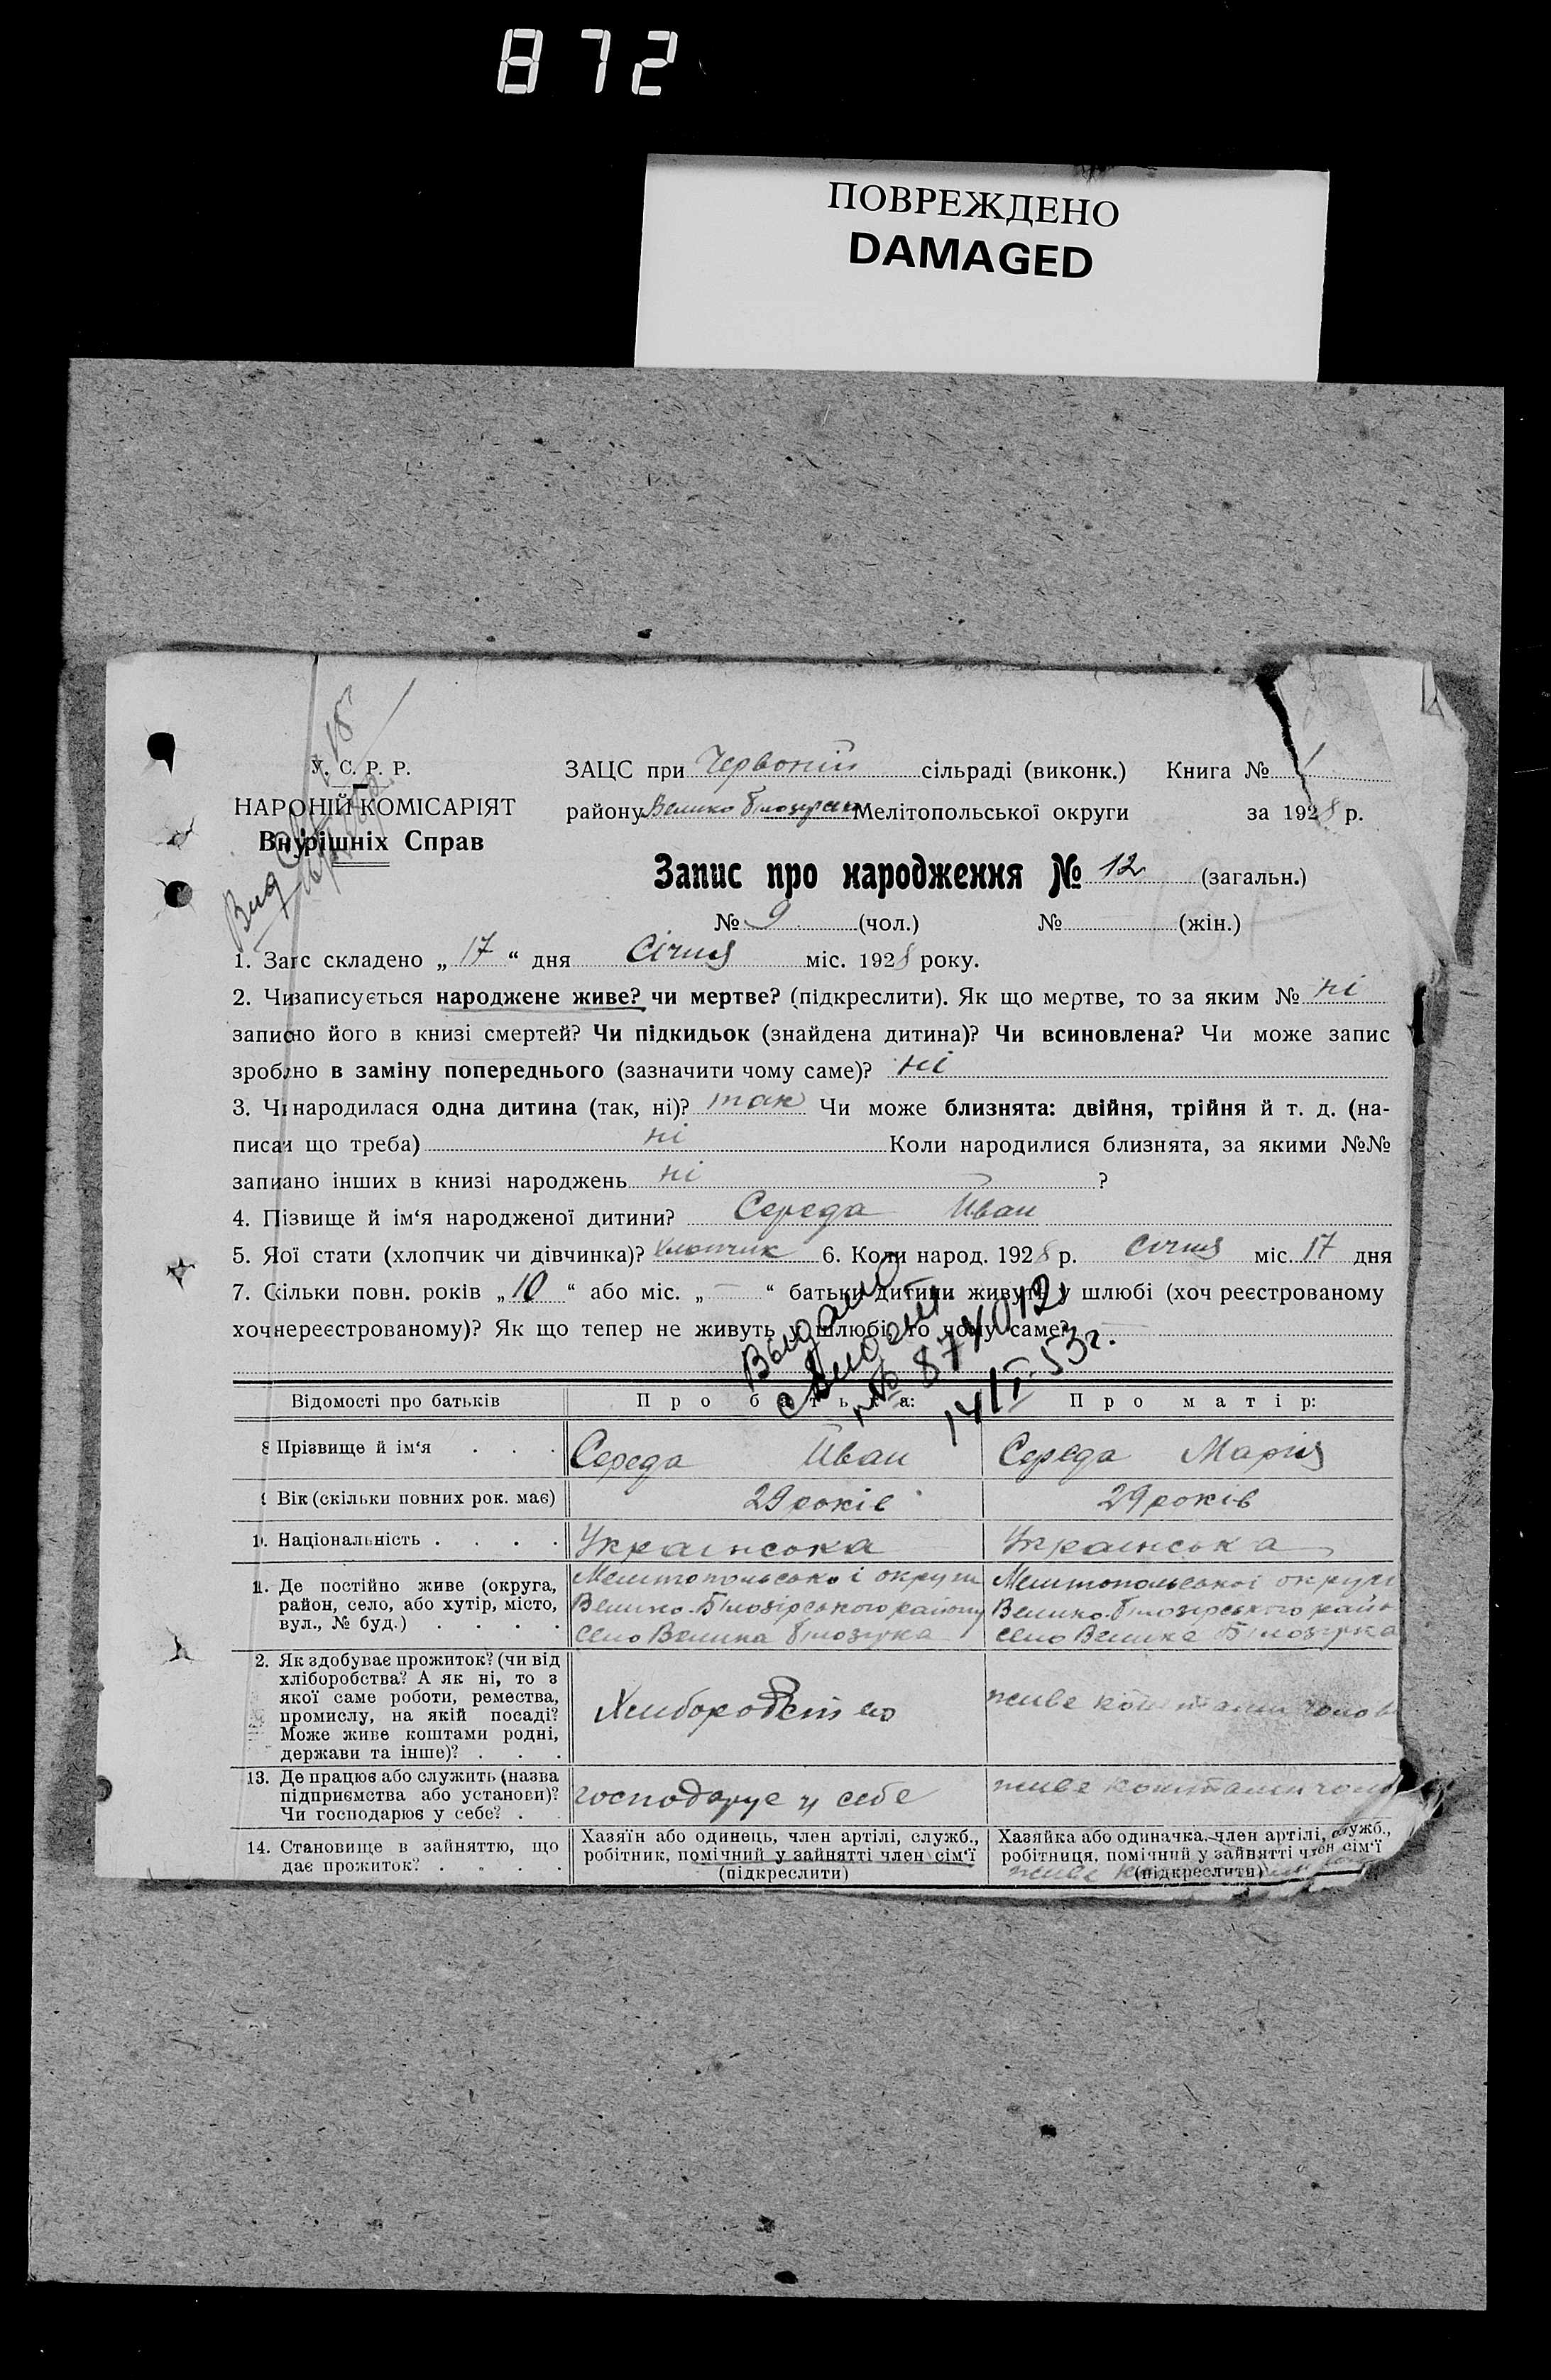 872
ПОВРЕЖДЕНО
DAMAGED
У. С. Р. Р.
НАРОНІЙ КОМІСАРІЯТ
Внурішніх Справ
ЗАЦС при Червоній сільраді (виконк.) Книга № 1
району Велико Білозірсько Мелітопольської округи за 1928 р.
Запис про народження № 12 (загальн.)
№ 9 (чол.) № (жін.)
1. Загс складено „ 17 “ дня Січня міс. 1928 року.
2. Чи записується народжене живе? чи мертве? (підкреслити). Як що мертве, то за яким № ні
записно його в книзі смертей? Чи підкидьок (знайдена дитина)? Чи всиновлена? Чи може запис
зроблно в заміну попереднього (зазначити чому саме)? ні
3. Чи народилася одна дитина (так, ні)? так Чи може близнята: двійня, трійня й т. д. (на-
писаи що треба) ні Коли народилися близнята, за якими №№
запиано інших в книзі народжень ні ?
4. Пізвище й ім‘я народженої дитини? Середа Иван
5. Яої стати (хлопчик чи дівчинка)? Хлопчик 6. Коли народ. 1928 р. Січня міс. 17 дня
7. Скільки повн. років „ 10 “ або міс. „ — “ батьки дитини живуть у шлюбі (хоч реєстрованому
хоч нереєстрованому)? Як що тепер не живуть у шлюбі, то чому саме? —
Выдано
№ 8
14/I-53г.
Відомості про батьків Про батька: Про матір:
8 Прізвище й ім‘я . . . Середа Иван Середа Марія
Вік (скільки повних рок. має) 29 років 29 років
1. Національність . . . . Українська Українська
11. Де постійно живе (округа, район, село, або хутір, місто, вул., № буд.) . . . .
Мелитопольської округи
Велико-Білозірського району
село Велика Білозірка
Мелитопольської округи
Велико-Білозірського райо
село Велика Білозірка
2. Як здобуває прожиток? (чи від
хліборобства? А як ні, то з
якої саме роботи, ремества,
промислу, на якій посаді?
Може живе коштами родні,
держави та інше)? . . .
Хлиборобство
живе коштами чолов
13. Де працює або служить (назва
підприємства або установи)?
Чи господарює у себе? .
господарує у себе
живе коштами чоло
14. Становище в зайняттю, що
дає прожиток? . . . .
Хазяїн або одинець, член артілі, служб.,
робітник, помічний у зайнятті член сім‘ї
(підкреслити)
Хазяйка або одиначка, член артілі, служб.,
робітниця, помічний у зайнятті член сім‘ї
(підкреслити)
живе